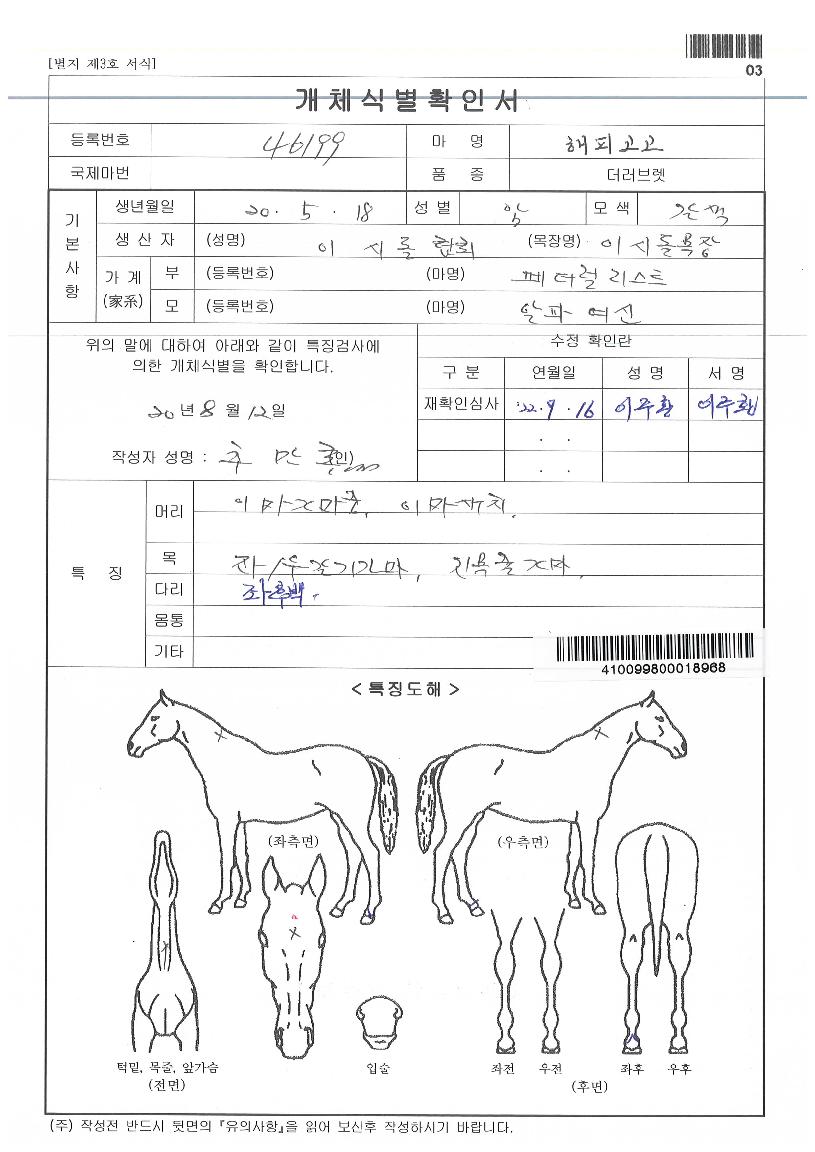 [별지 제3호 서식]
03
개체식별확인서
등록번호 46199 마 명 해피고고
국제마번 품 종 더러브렛
기본사항
생년월일 20 . 5 . 18 성 별 암 모 색 갈색
생 산 자 (성명) 이 시돌 협회 (목장명) 이시돌목장
가 계 (家系) 부 (등록번호) (마명) 페더럴리스트
모 (등록번호) (마명) 알파여신
위의 말에 대하여 아래와 같이 특징검사에
의한 개체식별을 확인합니다.
20년 8 월 12일
작성자 성명 : 추 만 (인)
수정 확인란
구 분 연월일 성 명 서 명
재확인심사 '22. 9 . 16
. .
. .
특 징
머리 이마가마중, 이마
목 좌/우갈기가마, 목줄가마,
다리 좌후백.
몸통
기타
410099800018968
< 특징도해 >
(좌측면) (우측면)
턱밑, 목줄, 앞가슴 입술 좌전 우전 좌후 우후
(전면) (후면)
(주) 작성전 반드시 뒷면의 『유의사항』을 읽어 보신후 작성하시기 바랍니다.